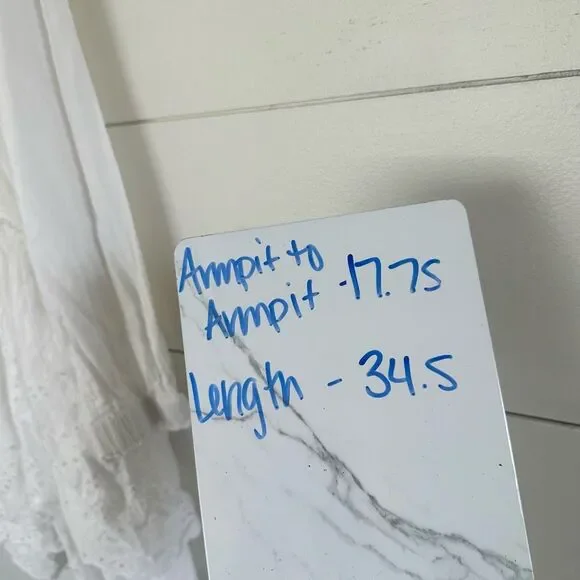 Armpit to
Armpit - 17.75
Length - 34.5